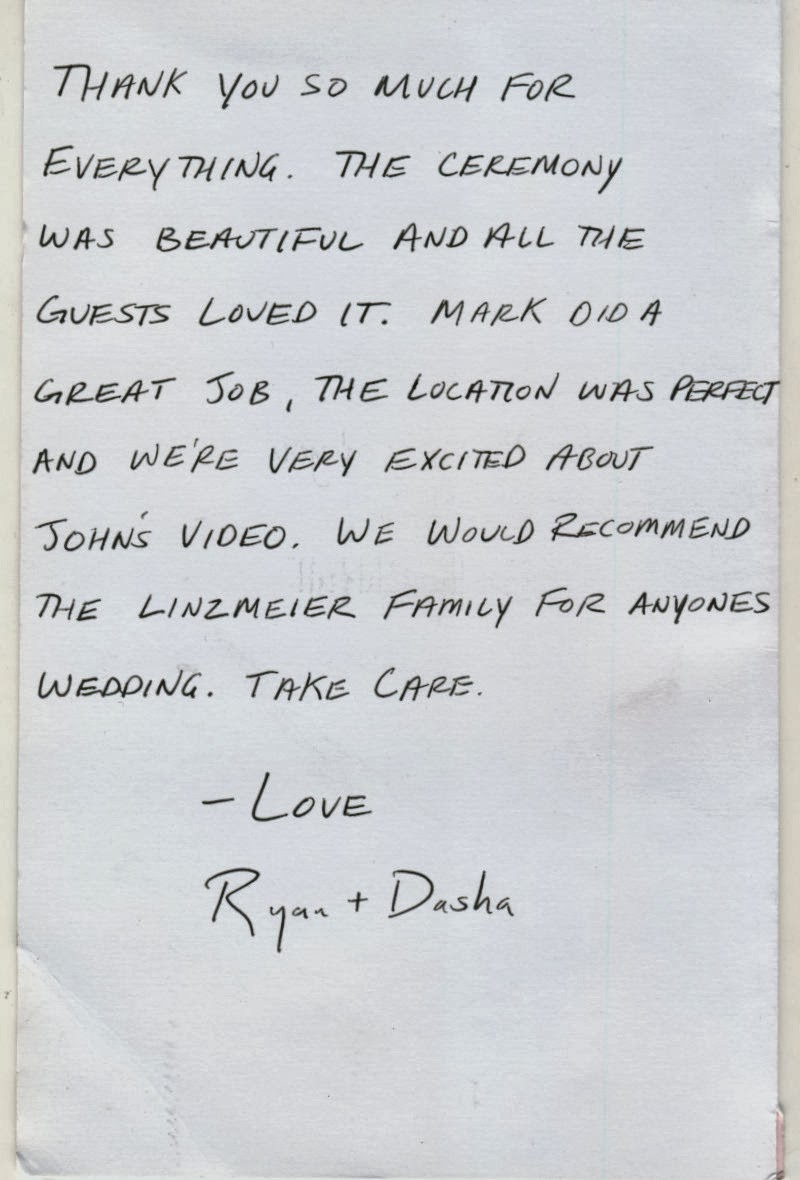 THANK YOU SO MUCH FOR
EVERYTHING. THE CEREMONY
WAS BEAUTIFUL AND ALL THE
GUESTS LOVED IT. MARK DID A
GREAT JOB, THE LOCATION WAS PERFECT
AND WE'RE VERY EXCITED ABOUT
JOHN'S VIDEO. WE WOULD RECOMMEND
THE LINZMEIER FAMILY FOR ANYONES
WEDDING. TAKE CARE.
- LOVE
Ryan + Dasha